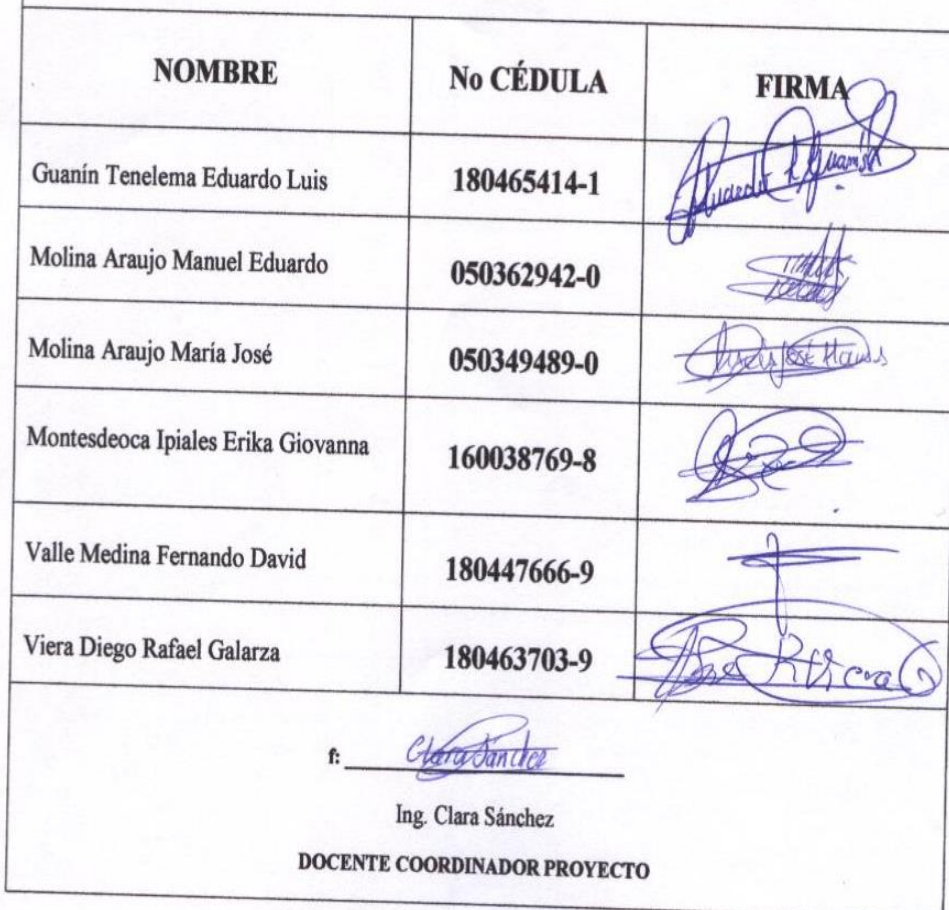 NOMBRE No CÉDULA FIRMA
Guanín Tenelema Eduardo Luis 180465414-1
Molina Araujo Manuel Eduardo 050362942-0
Molina Araujo María José 050349489-0 María José Molina
Montesdeoca Ipiales Erika Giovanna 160038769-8
Valle Medina Fernando David 180447666-9
Viera Diego Rafael Galarza 180463703-9
f: Clara Sánchez
Ing. Clara Sánchez
DOCENTE COORDINADOR PROYECTO